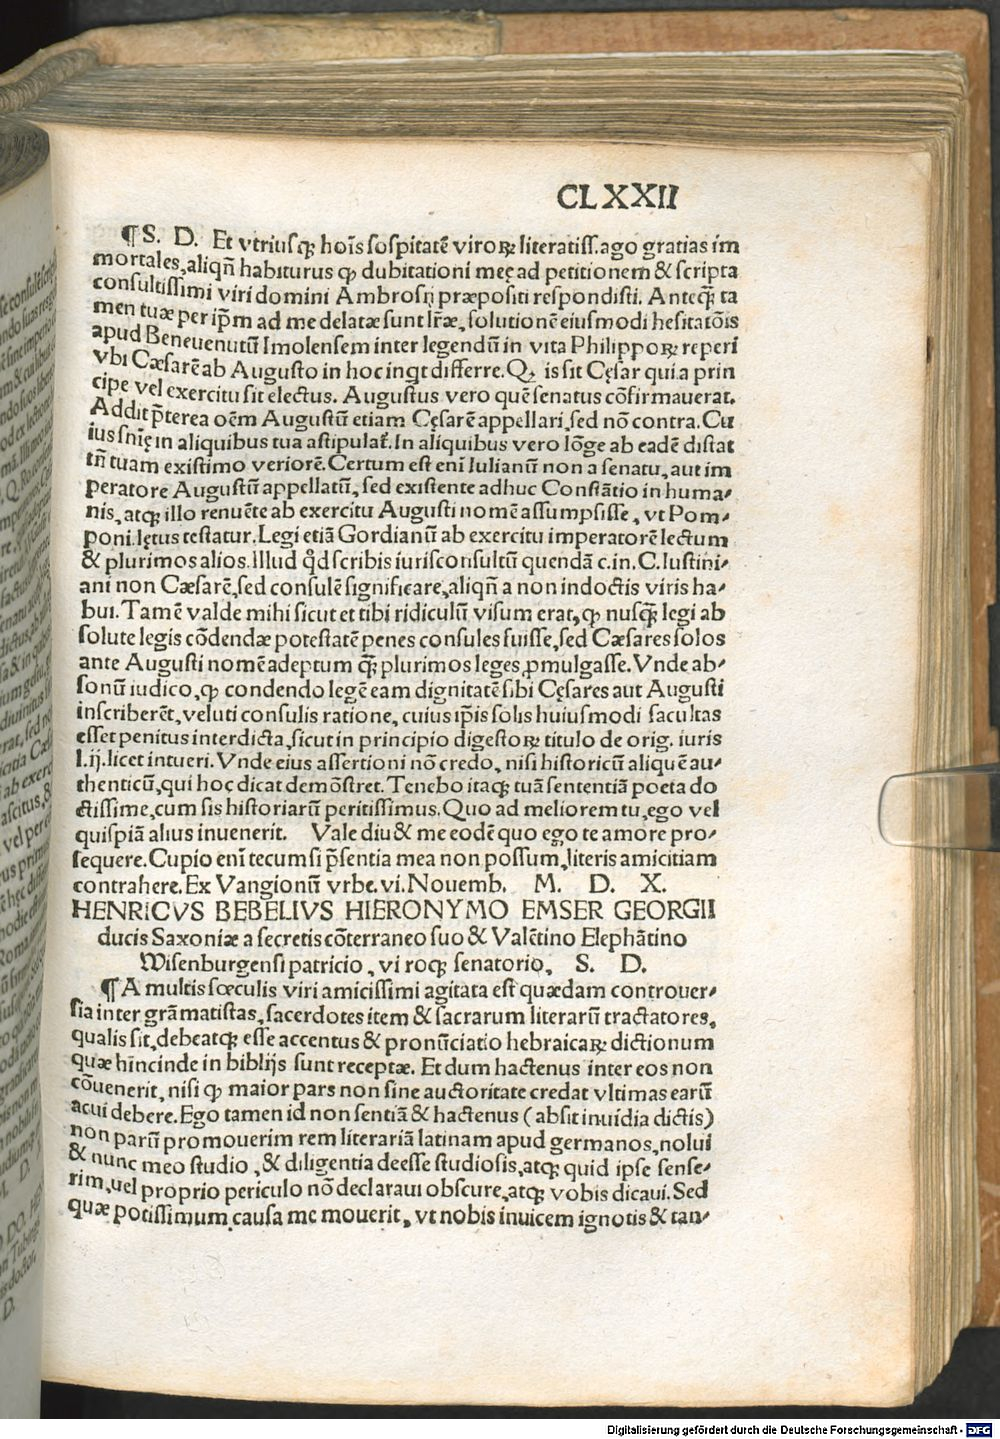 CLXXII
¶S. D. Et vtriusqꝫ hoīs sospitatē viroꝝ literatiss.ago gratias im
mortales,aliqñ habiturus ꝙ dubitationi meę ad petitionem & scripta
consultissimi viri domini Ambrosij præpositi respondisti. Anteq̄ꝫ ta
men tuæ per ip̄m ad me delatæ sunt lr̄æ,solutionē eiusmodi hesitatōis
apud Beneuenutū Imolensem inter legendū in vita Philippoꝝ reperi
vbi Cæsarē ab Augusto in hoc inqt differre.Q, is sit Cęsar qui a prin
cipe vel exercitu sit electus. Augustus vero quē senatus cōfirmauerat.
Addit p̄terea oēm Augustū etiam Cęsarē appellari,sed nō contra.Cu
ius snię in aliquibus tua astipulat̄.In aliquibus vero lōge ab eadē distat
tñ tuam existimo veriorē.Certum est enī Iulianū non a senatu,aut im
peratore Augustū appellatū,sed existente adhuc Constātio in huma/
nis,atqꝫ illo renuēte ab exercitu Augusti nomē assumpsisse,vt Pom/
poni.lętus testatur.Legi etiā Gordianū ab exercitu imperatorē lectum
& plurimos alios.Illud q̊d scribis iurisconsultū quendā c.in.C.Iustini/
ani non Cæsarē,sed consulē significare,aliqñ a non indoctis viris ha/
bui.Tamē valde mihi sicut et tibi ridiculū visum erat,ꝙ nusq̄ꝫ legi ab
solute legis cōdendæ potestatē penes consules fuisse,sed Cæsares solos
ante Augusti nomē adeptum q̄ꝫ plurimos leges ꝓmulgasse.Vnde ab/
sonū iudico,ꝙ condendo legē eam dignitatē sibi Cęsares aut Augusti
inscriberēt,veluti consulis ratione,cuius ip̄is solis huiusmodi facultas
esset penitus interdicta,sicut in principio digestoꝝ titulo de orig. iuris
l.ij.licet intueri.Vnde eius assertioni nō credo,nisi historicū aliquē au/
thenticū,qui hoc dicat demōstret.Tenebo itaqꝫ tuā sententiā poeta do
ctissime,cum sis historiarū peritissimus.Quo ad meliorem tu,ego vel
quispiā alius inuenerit. Vale diu & me eodē quo ego te amore pro/
sequere.Cupio enī tecum si p̄sentia mea non possum,literis amicitiam
contrahere.Ex Vangionū vrbe.vi.Nouemb. M. D. X.
HENRICVS BEBELIVS HIERONYMO EMSER GEORGII
ducis Saxoniæ a secretis cōterraneo suo & Valētino Elephātino
Misenburgensi patricio, vi roqꝫ senatorio, S. D.
¶A multis sœculis viri amicissimi agitata est quædam controuer/
sia inter grāmatistas,sacerdotes item & sacrarum literarū tractatores,
qualis sit,debeatqꝫ esse accentus & pronūciatio hebraicaꝝ dictionum
quæ hīncinde in biblijs sunt receptæ. Et dum hactenus inter eos non
cōuenerit,nisi ꝙ maior pars non sine auctoritate credat vltimas earū
acui debere.Ego tamen id non sentiā & hactenus (absit inuidia dictis)
non parū promouerim rem literariā latinam apud germanos,nolui
& nunc meo studio,& diligentia deesse studiosis,atqꝫ quid ipse sense/
rim,uel proprio periculo nō declaraui obscure,atqꝫ vobis dicaui.Sed
quæ potissimum causa me mouerit,vt nobis inuicem ignotis & tan/
Digitalisierung gefördert durch die Deutsche Forschungsgemeinschaft - DFG